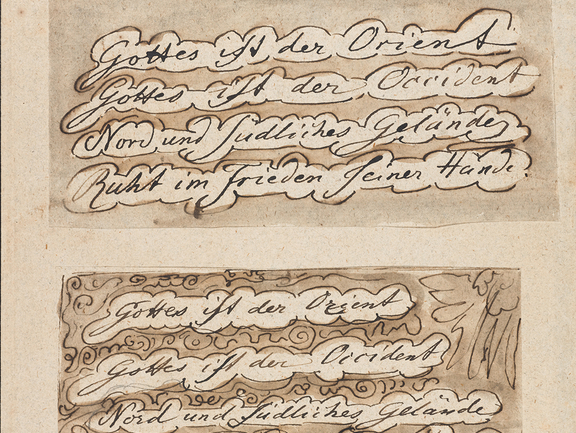 Gottes ist der Orient
Gottes ist der Occident
Nord und südliches Gelände
Ruht im Frieden seiner Hände.
Gottes ist der Orient
Gottes ist der Occident
Nord und südliches Gelände